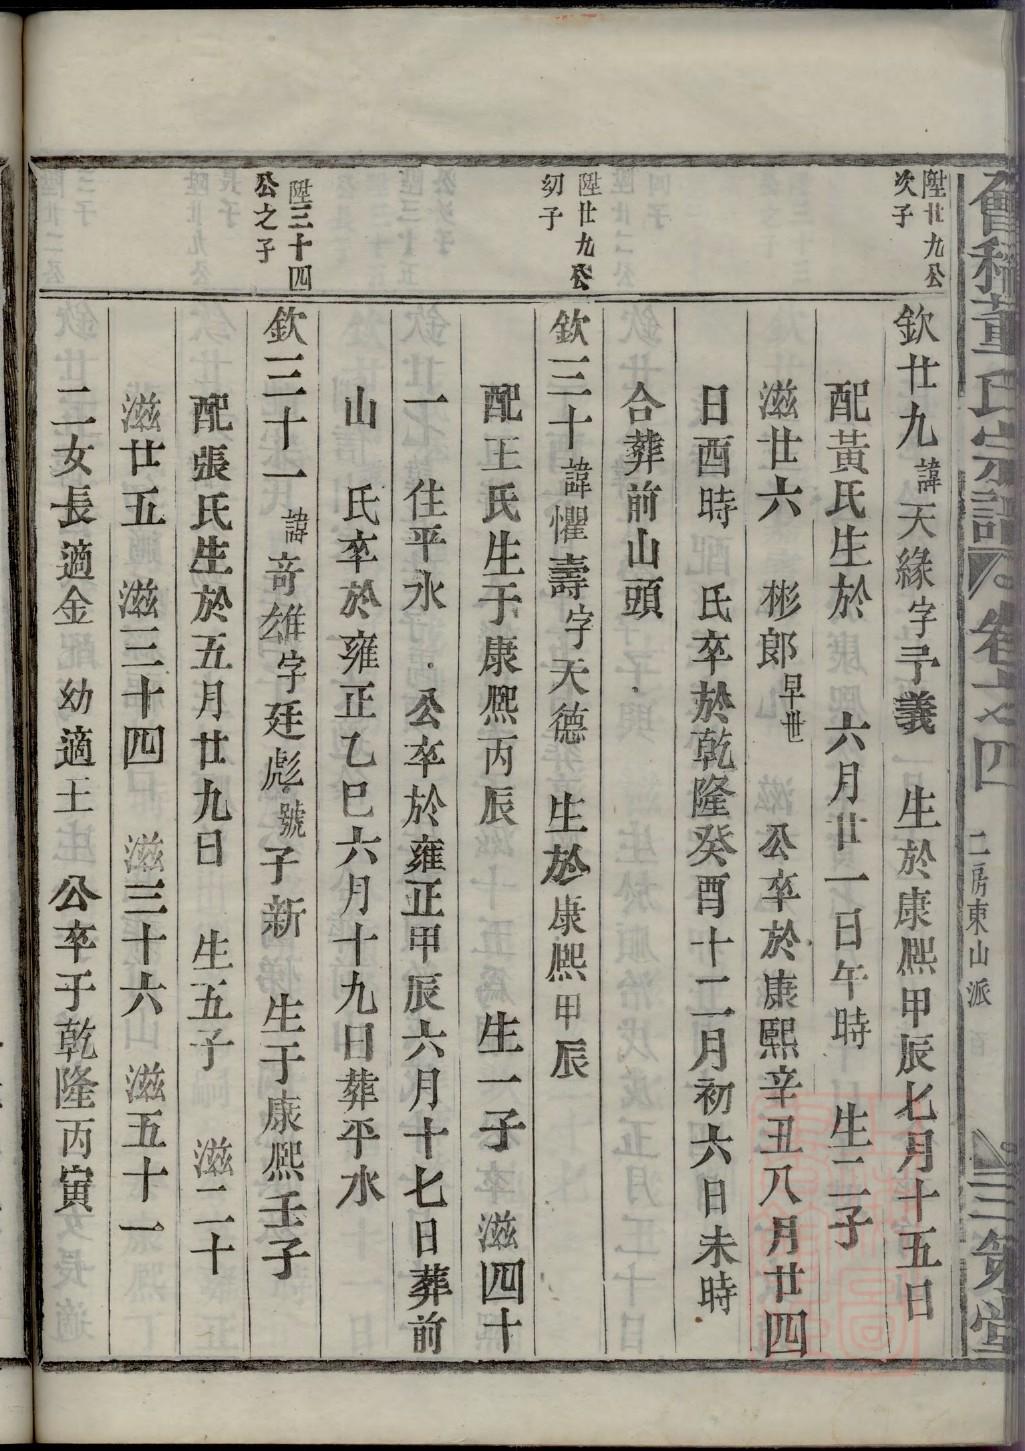 會稽董氏宗譜 卷之四 二房東山派 三策堂
陞廿九公
次子
欽廿九 諱天緣字予義 生於康熙甲辰七月十五日
配黃氏生於 六月廿一日午時 生二子
滋廿六 彬郎早世 公卒於康熙辛丑八月廿四
日酉時 氏卒於乾隆癸酉十二月初六日未時
合葬前山頭
陞廿九公
幼子
欽三十諱懼壽字天德 生於康熙甲辰
配王氏生于康熙丙辰 生一子 滋四十
一 住平水 公卒於雍正甲辰六月十七日葬前
山 氏卒於雍正乙巳六月十九日葬平水
陞三十四
公之子
欽三十一 諱奇雄字廷彪號子新 生于康熙壬子
配張氏生於五月廿九日 生五子 滋二十
滋廿五 滋三十四 滋三十六 滋五十一
二女長適金 幼適王 公卒于乾隆丙寅